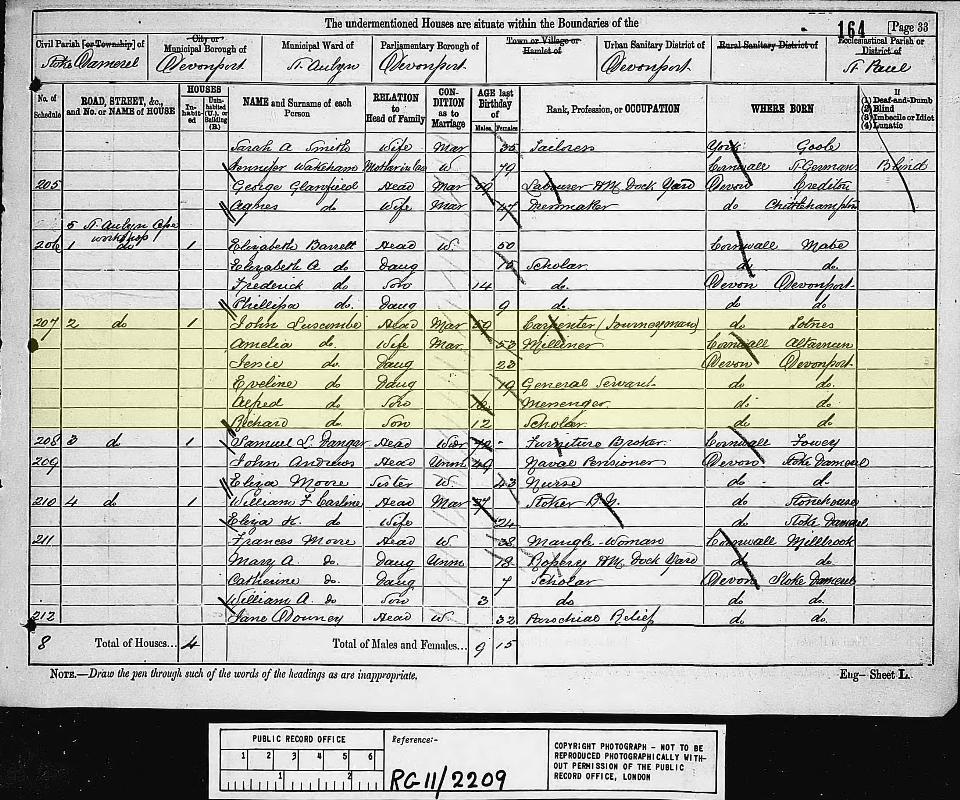 The undermentioned Houses are situate within the Boundaries of the
164 [Page 33
Civil Parish [or Township] of
Stoke Damerel
City or Municipal Borough of
Devonport
Municipal Ward of
St Aubyn
Parliamentary Borough of
Devonport
Town or Village or Hamlet of
Urban Sanitary District of
Devonport
Rural Sanitary District of
Ecclesiastical Parish or District of
St Paul
No. of Schedule
ROAD, STREET, &c., and No. or NAME of HOUSE
HOUSES
Inhabited
Uninhabited (U.), or Building (B.)
NAME and Surname of each Person
RELATION to Head of Family
CONDITION as to Marriage
AGE last Birthday of
Males Females
Rank, Profession, or OCCUPATION
WHERE BORN
If
(1) Deaf-and-Dumb
(2) Blind
(3) Imbecile or Idiot
(4) Lunatic
Sarah A Smith Wife Mar 35 Tailoress York Goole
Jennifer Wakeham Mother in law W 79 Cornwall St Germans Blind
205 George Glanfield Head Mar Labourer HM Dock Yard Devon Crediton
Agnes do Wife Mar 47 do
5 St Aubyn
workshop
206 1 do 1 Elizabeth Barrett Head W. 50 Cornwall Mabe
Elizabeth A do Daug Scholar do do.
Frederick do Son 14 do. Devon Devonport
Phillipa do. Daug 9 do. do do
207 2 do 1 John Luscombe Head Mar 59 Carpenter (Journeyman) do Totnes
Amelia do Wife Mar 53 Milliner Cornwall Altarnun
Jessie do Daug 23 Devon Devonport
Eveline do Daug 19 General Servant do do.
Alfred do Son Messenger do do.
Richard do Son 12 Scholar do do
208 3 do 1 Samuel L. Dangar Head Widr Furniture Broker Cornwall Fowey
209 John Andrews Head Unm 49 Naval Pensioner Devon Stoke Damerel
Eliza Moore Sister W. 43 Nurse do do
210 4 do 1 William F Carline Head Mar 27 Stoker R.N. do Stonehouse
Eliza H. do Wife 24 do Stoke Damerel
211 Frances Moore Head W 38 Mangle-Woman Cornwall Millbrook
Mary A. do. Daug Unm 18 Ropery HM Dock Yard do do.
Catherine do. Daug 7 Scholar Devon Stoke Damerel
William A. do Son 3 do do do.
212 Jane Downey Head W. 32 Parochial Relief do do.
8 Total of Houses... 4 Total of Males and Females... 9 15
NOTE.—Draw the pen through such of the words of the headings as are inappropriate.
Eng— Sheet L.
PUBLIC RECORD OFFICE
1 2 3 4 5 6
1 2
Reference:-
RG 11/2209
COPYRIGHT PHOTOGRAPH - NOT TO BE
REPRODUCED PHOTOGRAPHICALLY WITH-
OUT PERMISSION OF THE PUBLIC
RECORD OFFICE, LONDON